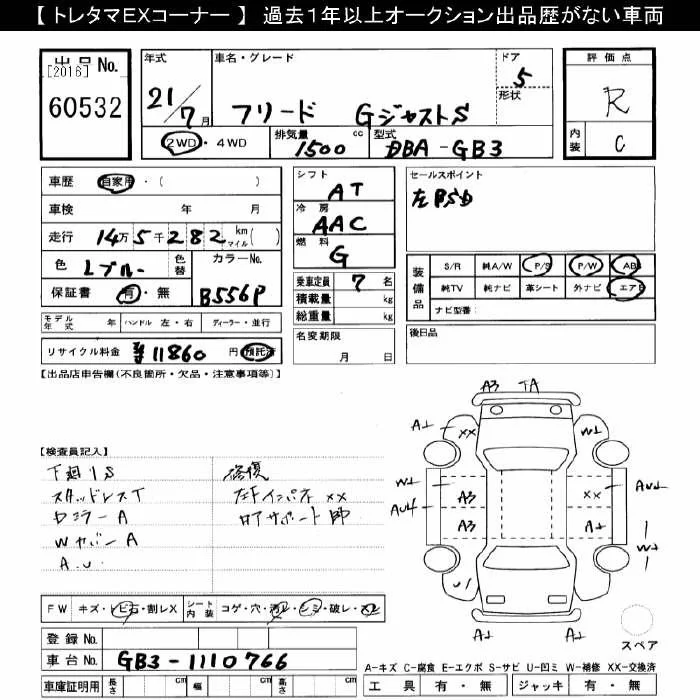 【 トレタマEXコーナー 】 過去１年以上オークション出品歴がない車両
出品 No.
[2016]
60532
年式
21/7月
車名・グレード
フリード GジャストS
ドア
5
形状
2WD・4WD
排気量
1500 cc
型式
DBA-GB3
評価点
R
内装
C
車歴 自家用・( )
車検 年 月
走行 14万5千282 km マイル( )
色 Lブルー
色替
カラーNo.
B556P
保証書 有・無
モデル年式 年 ハンドル 左・右 ディーラー・並行
リサイクル料金 ¥11860 円 預託済
シフト
AT
冷房
AAC
燃料
G
乗車定員 7 名
積載量 kg
総重量 kg
名変期限
月 日
セールスポイント
装備品
S/R 純A/W P/S P/W ABS
純TV 純ナビ 革シート 外ナビ エアB
ナビ型番:
後日品
【出品店申告欄(不良箇所・欠品・注意事項等)】
【検査員記入】
下廻りS
スタッドレスT
ミラーA
WカバーA
A.U
修復
インパネ XX
サポート
FW キズ・トビ石・割レX
シート内装 コゲ・穴・汚レ・シミ・破レ・スレ
登録 No.
車台 No. GB3-1110766
車庫証明用 長さ cm 幅 cm 高さ cm
A3 TA
A1
XX
W1
W1
AU1
A3
XX
AU1
A3
A1
W2
U1
A1
A1
スペア
A-キズ C-腐食 E-エクボ S-サビ U-凹ミ W-補修 XX-交換済
工具 有・無 ジャッキ 有・無